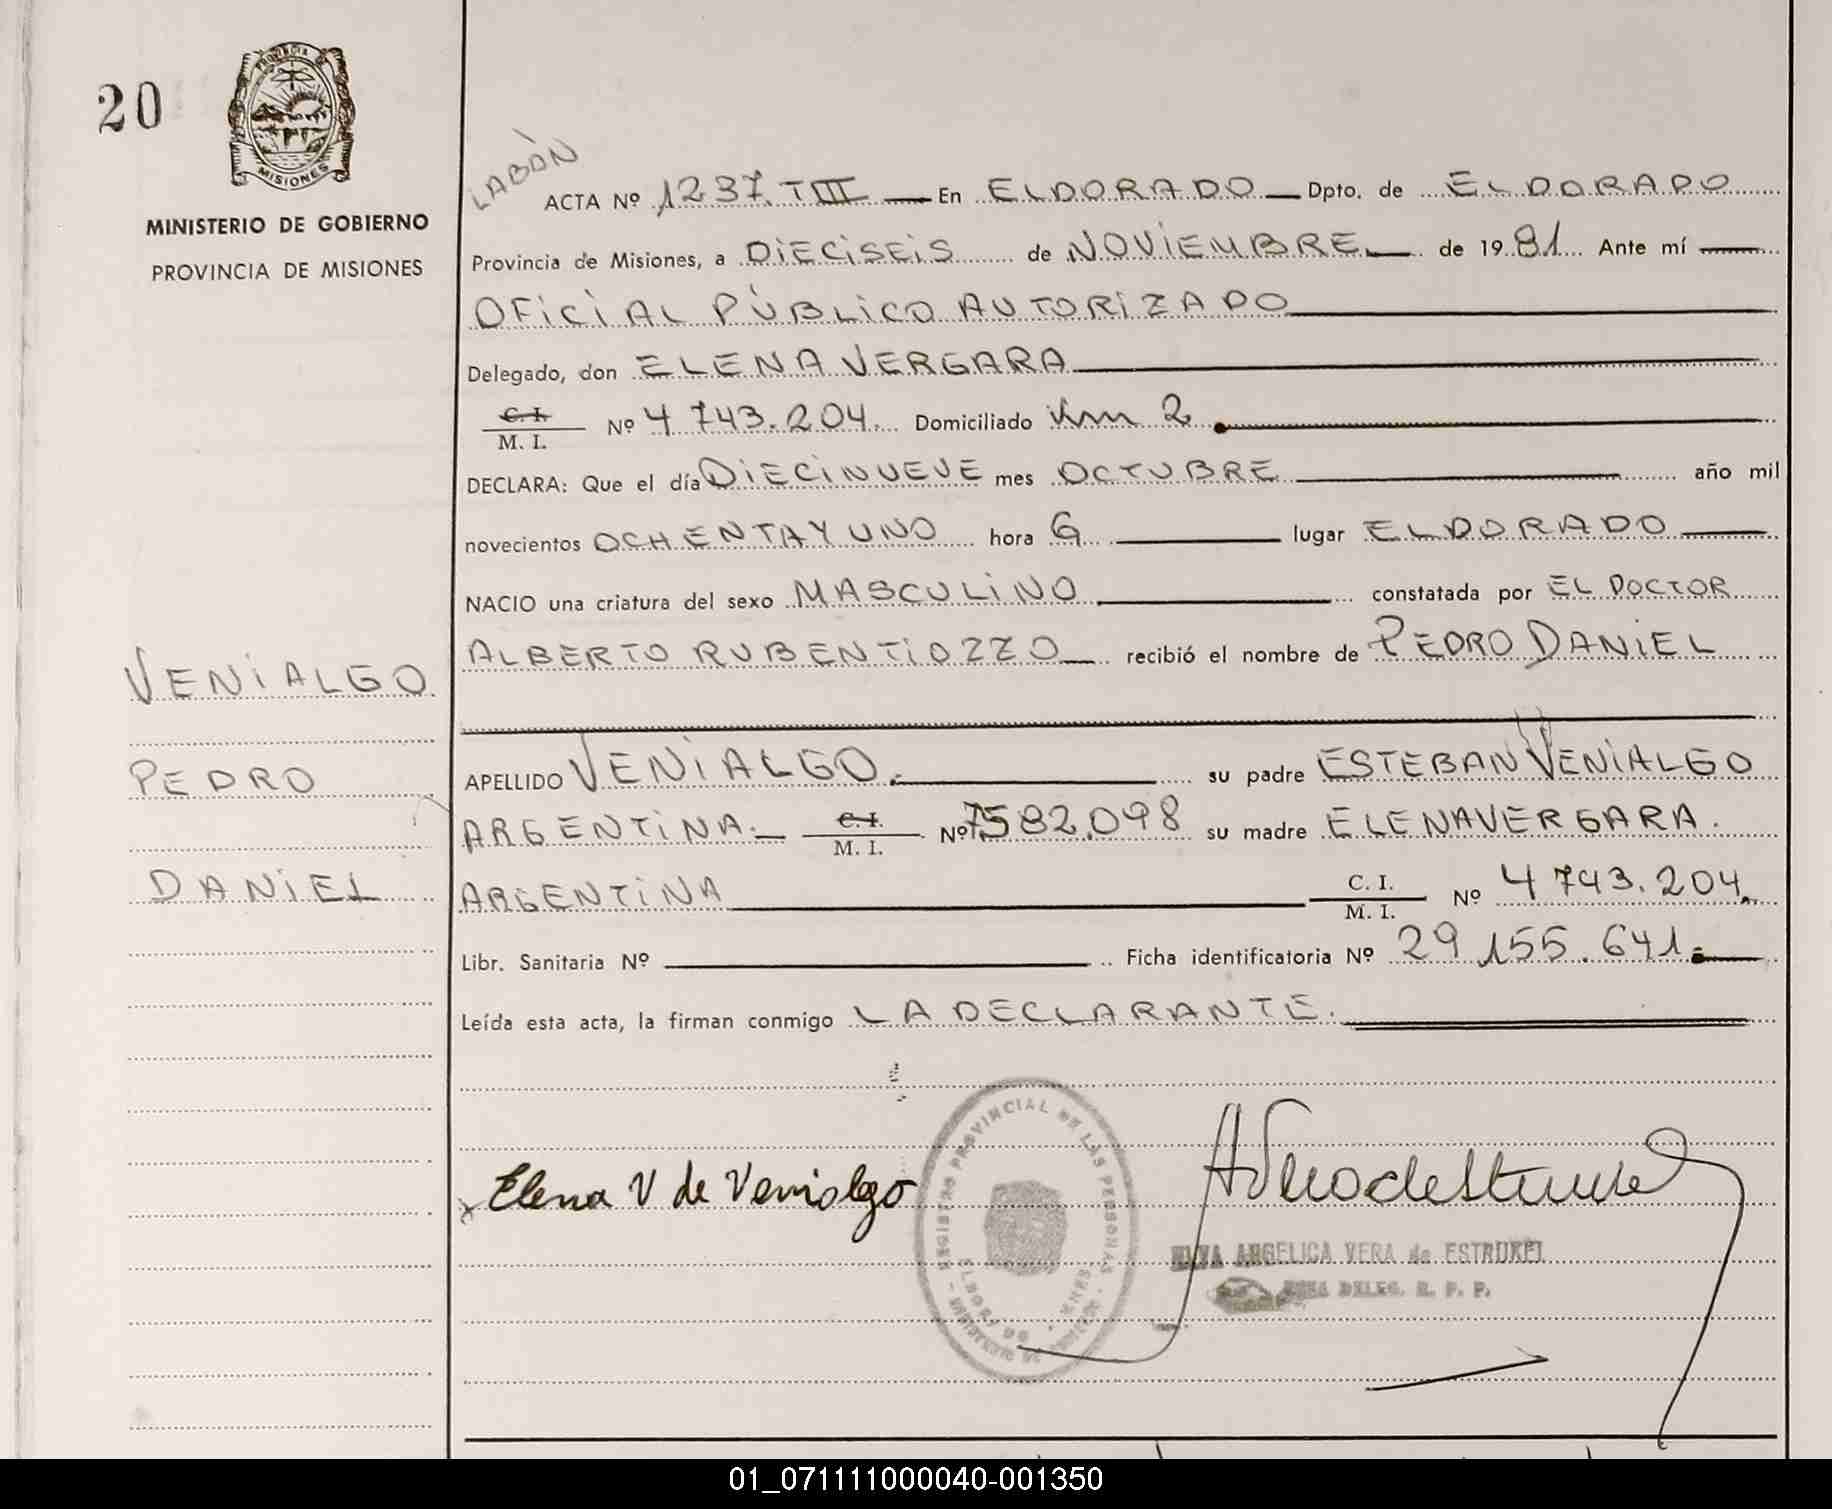 20
PROVINCIA
MISIONES
MINISTERIO DE GOBIERNO
PROVINCIA DE MISIONES
LABÓN
ACTA Nº 1237. T III — En ELDORADO — Dpto. de ELDORADO
Provincia de Misiones, a DIECISEIS de NOVIEMBRE de 19 81 Ante mí
OFICIAL PÚBLICO AUTORIZADO
Delegado, don ELENA VERGARA
C. I.
M. I. Nº 4.743.204. Domiciliado Km 2
DECLARA: Que el día DIECINUEVE mes OCTUBRE año mil
novecientos OCHENTA Y UNO hora 6 lugar ELDORADO
NACIO una criatura del sexo MASCULINO constatada por EL DOCTOR
ALBERTO RUBEN TIOZZO recibió el nombre de PEDRO DANIEL
VENIALGO
PEDRO
DANIEL
APELLIDO VENIALGO. su padre ESTEBAN VENIALGO
ARGENTINA. C. I.
M. I. Nº 7582.098 su madre ELENA VERGARA.
ARGENTINA C. I.
M. I. Nº 4.743.204.
Libr. Sanitaria Nº Ficha identificatoria Nº 29.155.641
Leída esta acta, la firman conmigo LA DECLARANTE.
x Elena V de Venialgo
REGISTRO PROVINCIAL DE LAS PERSONAS
ELDORADO
ANGELICA VERA de ESTRUKEL
DELEG. R. P. P.
01_071111000040-001350